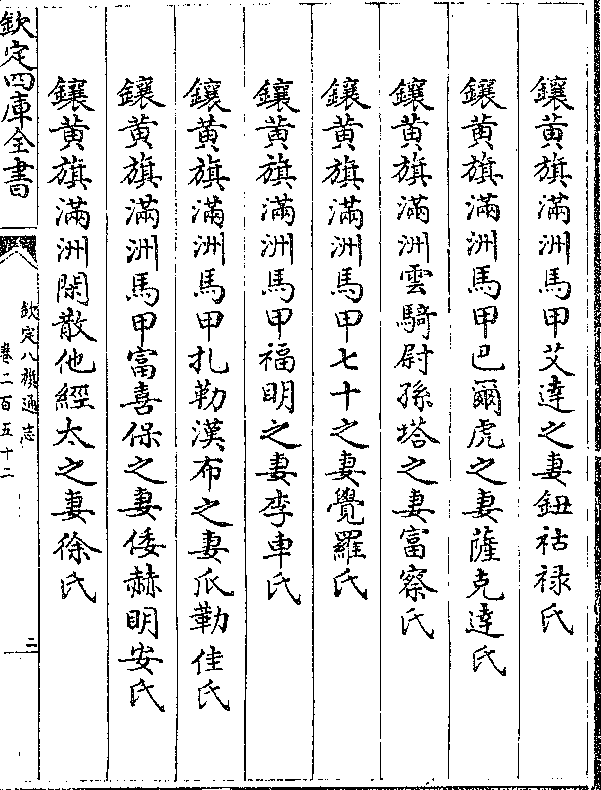 鑲黃旗滿洲馬甲艾達之妻鈕祜禄氏
鑲黃旗滿洲馬甲巴爾虎之妻薩克達氏
鑲黃旗滿洲雲騎尉孫塔之妻富察氏
鑲黃旗滿洲馬甲七十之妻覺羅氏
鑲黃旗滿洲馬甲福明之妻李車氏
鑲黃旗滿洲馬甲扎勒漢布之妻瓜勒佳氏
鑲黃旗滿洲馬甲富喜保之妻倭赫明安氏
鑲黃旗滿洲閑散他經太之妻徐氏
欽定四庫全書
欽定八旗通志
卷二百五十二
二